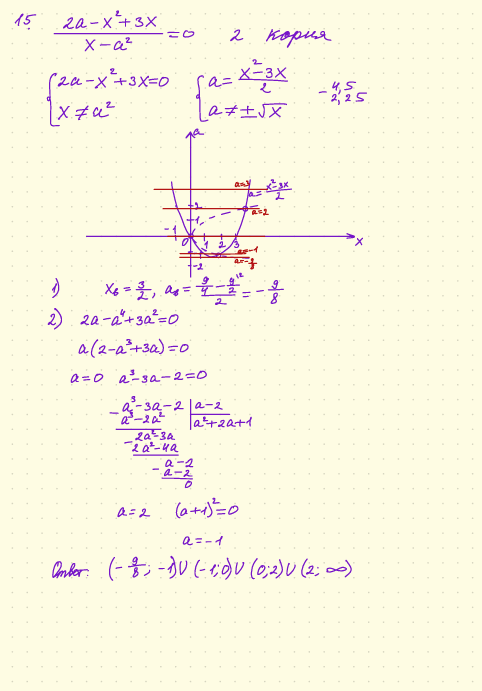 15. (2a - x² + 3x)/(x - a²) = 0   2 корня
{ 2a - x² + 3x = 0   { a = (x² - 3x)/2   - 4,5
x ≠ a²   a ≠ ± √x   2,25
a
a=3   a = (x² - 3x)/2
2   a=2
1
-1   0   1   2   3   x
a=-1
-2   a=-9/8
1) xв = 3/2, aв = (9/4 - 9/2)/2 = - 9/8
2) 2a - a⁴ + 3a² = 0
a(2 - a³ + 3a) = 0
a = 0   a³ - 3a - 2 = 0
- a³ - 3a - 2 | a - 2
a³ - 2a² | a² + 2a + 1
- 2a² - 3a
2a² - 4a
- a - 2
a - 2
0
a = 2   (a+1)² = 0
a = -1
Ответ: (- 9/8; -1) ∪ (-1; 0) ∪ (0; 2) ∪ (2; ∞)